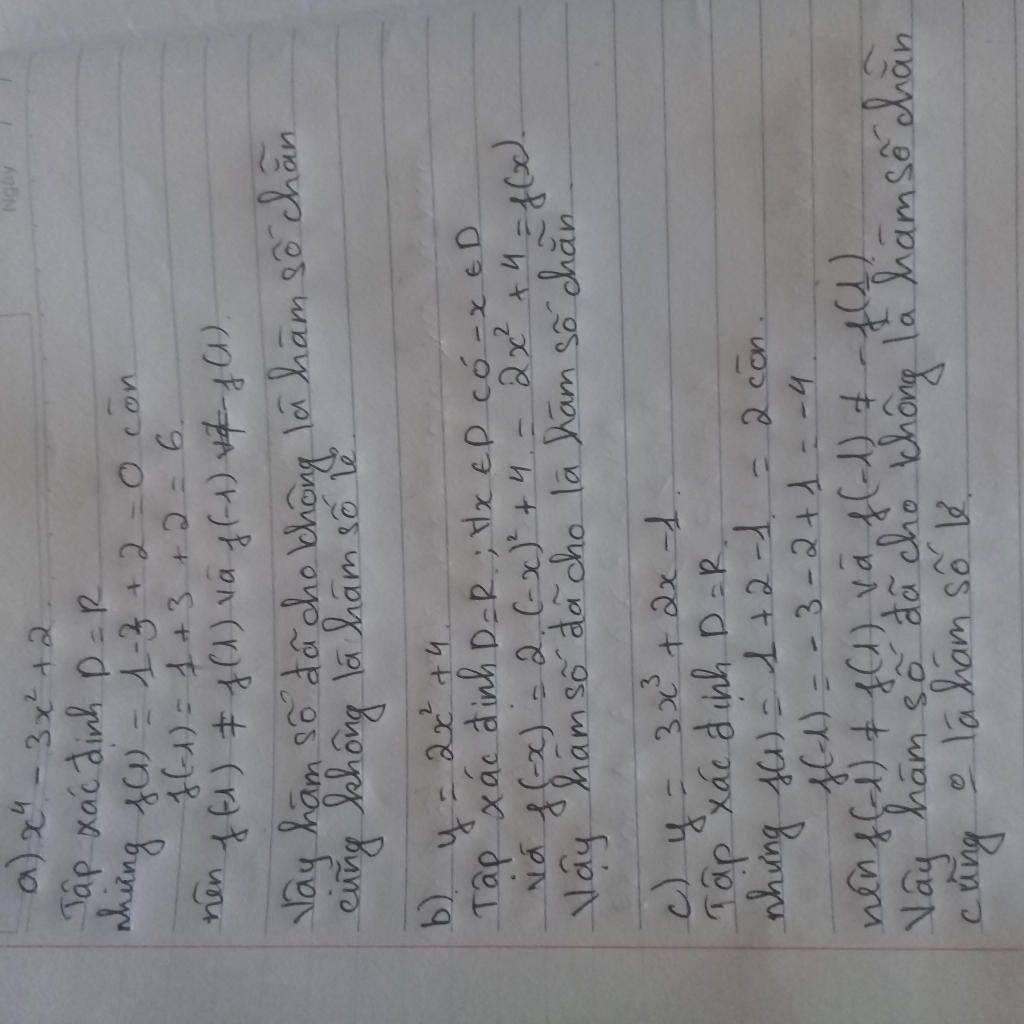 Ngày / /
a) x⁴ - 3x² + 2
Tập xác định D = R
nhưng f(1) = 1 - 3 + 2 = 0 còn
f(-1) = 1 + 3 + 2 = 6
nên f(-1) ≠ f(1) và f(-1) ≠ - f(1).
Vậy hàm số đã cho không là hàm số chẵn
cũng không là hàm số lẻ
b) y = 2x² + 4
Tập xác định D = R ; ∀x ∈ D có - x ∈ D
và f(-x) = 2 (-x)² + 4 = 2x² + 4 = f(x).
Vậy hàm số đã cho là hàm số chẵn
c) y = 3x³ + 2x - 1
Tập xác định D = R
nhưng f(1) = 1 + 2 - 1 = 2 còn.
f(-1) = - 3 - 2 + 1 = - 4
nên f(-1) ≠ f(1) và f(-1) ≠ - f(1)
Vậy hàm số đã cho không là hàm số chẵn
cũng o là hàm số lẻ